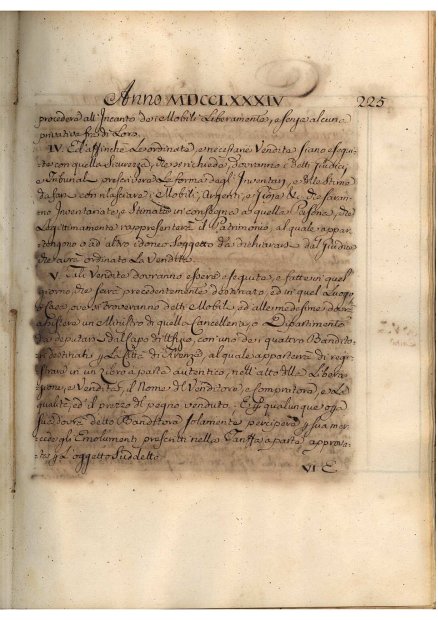 Anno MDCCLXXXIV 225
procederà all' Incanto de' Mobili Liberamente, e senza alcuna
privativa frà di Loro.
IV. Ed affinchè Le ordinate, e necessarie Vendite siano esegui-
te con quella Sicurezza, che si richiede, dovranno i detti Giudici,
e Tribunali prescrivere La forma degl' Inventari, e delle Stime
da farsi con lasciare i Mobili, Argenti, e Gioie &c. che saran-
no Inventariate, e Stimate in consegna a quella Persona, che
Legittimamente rappresenterà il Patrimonio, al quale appar-
tengono o ad altro idoneo Soggetto da dichiararsi dal Giudice
che avrà ordinato La Vendita.
V. Tali Vendite dovranno essere eseguite, e fatte in quel
giorno, che sarà precedentemente destinato, ed in quel Luogo
o Casa ove si troveranno detti Mobili ed alle medesime dovrà
assistere un Ministro di quella Cancelleria, o Dipartimento
da deputarsi dal Capo d'Uffizio, con uno dei quattro Bandito-
ri destinati per La Città di Firenze, al quale apparterrà di regi-
strare in un Libro a parte autentico, nell' atto della Libera-
zione, e Vendita, il Nome del Venditore, e Compratore, e La
qualità, ed il prezzo del pegno venduto. E per qualunque
detto Banditore solamente percipere per sua mer-
cede gli Emolumenti prescritti nella Tariffa a parte approva-
ta per L' oggetto Suddetto.
VI E